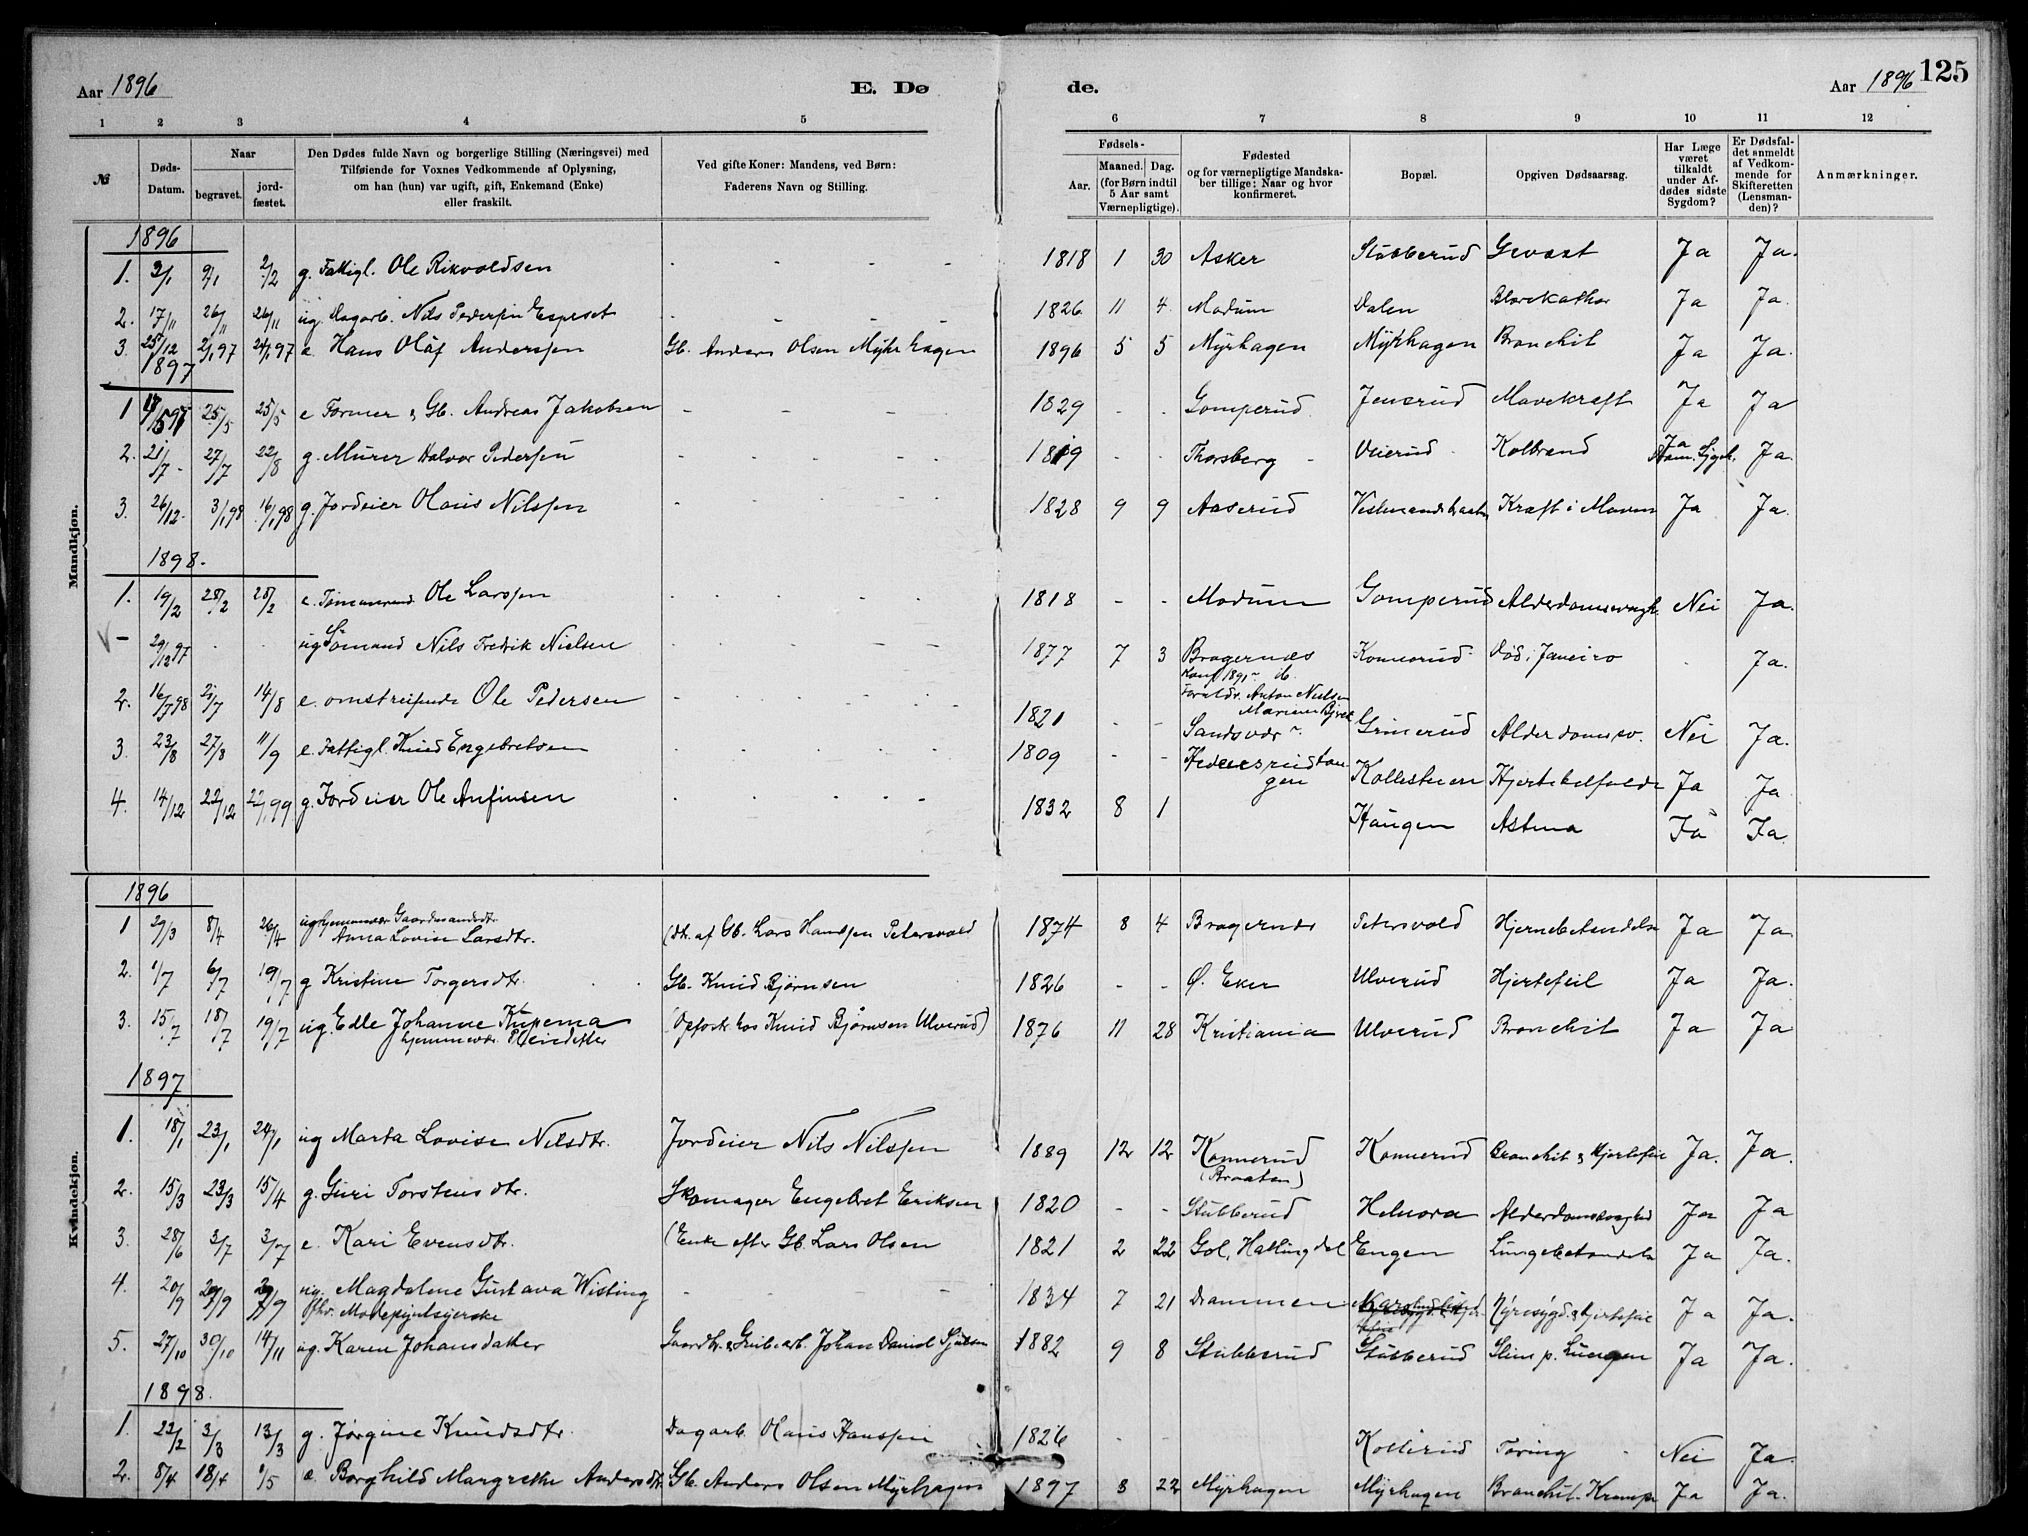 Aar 1896 E. Dø de. Aar 1896 125
1 2 3 4 5 6 7 8 9 10 11 12
№ Døds-Datum. Naar begravet. jordfæstet. Den Dødes fulde Navn og borgerlige Stilling (Næringsvei) med Tilføiende for Voxnes Vedkommende af Oplysning, om han (hun) var ugift, gift, Enkemand (Enke) eller fraskilt. Ved gifte Koner: Mandens, ved Børn: Faderens Navn og Stilling. Fødsels- Aar. Maaned. Dag. (for Børn indtil 5 Aar samt Værnepligtige). Fødested og for værnepligtige Mandskaber tillige: Naar og hvor konfirmeret. Bopæl. Opgiven Dødsaarsag. Har Læge været tilkaldt under Afdødes sidste Sygdom? Er Dødsfaldet anmeldt af Vedkommende for Skifteretten (Lensmanden)? Anmærkninger.
Mandkjøn.
1896
1. 3/1 9/1 2/2 g. Fattigl. Ole Rikvoldsen 1818 1 30 Asker Stubberud Gevæxt Ja Ja.
2. 17/11 26/11 26/11 ug. Dagarb. Nils Pedersen Espeset 1826 11 4 Modum Dalen Blærekathar Ja Ja.
3. 25/12 2/1 97 24/1 97 e. Hans Olaf Anderssen Gb. Anders Olsen Myhrhagen 1896 5 5 Myrhagen Myrhagen Bronchit Ja Ja.
1897
1 25/5 25/5 e Former & Gb. Andreas Jakobsen 1829 - - Gomperud Jensrud Mavekræft Ja Ja
2. 21/7 27/7 22/8 g. Murer Halvor Pedersen 1819 - - Thorsberg Veierud Kolbrand Ja Ja.
3. 26/12 3/1 98 16/1 98 g. Jordeier Olaus Nilssen 1828 9 9 Aaserud Kræft i Maven Ja Ja.
1898.
1. 19/2 28/2 28/2 e. Tømmermand Ole Larssen 1818 - - Modum Gomperud Alderdomssvagh. Nei Ja.
- 29/12 97 ug Sømand Nils Fredrik Nielsen 1877 7 3 Bragernæs Konnerud Død i Janeiro Ja.
Konf 1891 ib.
Foreldr. Anton Nielsen
2. 16/7 98 21/7 14/8 e. omstreifende Ole Pedersen 1821 - - Sandsvær Grinerud Alderdomssv. Nei Ja.
3. 23/8 27/8 11/9 e. Fattigl. Knud Engebretsen 1809 - - Hedensrudtangen Kollesteen Hjertebetændelse Ja Ja
4. 14/12 22/12 22/1 99 g. Jordeier Ole Anfinsen 1832 8 1 Haugen Astma Ja Ja.
Kvindekjøn.
1896
1 29/3 8/4 26/4 ug hjemmevær. Gaardmandsdtr. Anna Lovise Larsdtr. (Dtr. af Gb. Lars Hanssen Petersvold 1874 8 4 Bragernes Petersvold Hjernebetændelse Ja Ja.
2. 1/7 6/7 19/7 g Kristine Torgersdtr. Gb. Knud Bjørnsen 1826 - - Ø. Eker Ulverud Hjertefeil Ja Ja.
3. 15/7 18/7 19/7 ug. Edle Johanne (Opfostr. hos Knud Bjørnsen Ulverud) 1876 11 28 Kristiania Ulverud Bronchit Ja Ja
1897
1. 18/1 23/1 24/1 ug Marta Lovise Nilsdtr. Jordeier Nils Nilssen 1889 12 12 Konnerud (Braaten) Konnerud Bronchit & Hjertefeil Ja. Ja.
2. 15/3 23/3 15/4 g. Guri Torstensdtr. Skomager Engebret Eriksen 1820 - - Stubberud Helnora Alderdomssvaghed Ja Ja
3. 28/6 3/7 3/7 e. Kari Evensdtr. (Enke efter Gb. Lars Olsen 1821 2 22 Gol, Hallingdal Engen Lungebetændelse Ja Ja.
4. 20/9 27/9 27/9 ug. Magdalene Gustava Wisting 1834 7 21 Drammen Nyresygd. & Hjertefeil Ja Ja.
fhv. Modepyntsyerske
5. 27/10 30/10 14/11 ug. Karen Johansdatter Gaardbr. & Grubearb. Johan Daniel 1882 9 8 Stubberud Stubberud Slim p. Lungen Ja Ja.
1898.
1. 22/2 3/3 13/3 g. Jørgine Knudsdtr. Dagarb. Olaus Hanssen 1826 - - Kollerud Tæring Nei Ja.
2. 8/4 18/4 1/5 e. Borghild Margrethe Andersdtr. Gb. Anders Olsen Myrhagen 1897 8 22 Myrhagen Myrhagen Bronchit. Krampe Ja Ja.